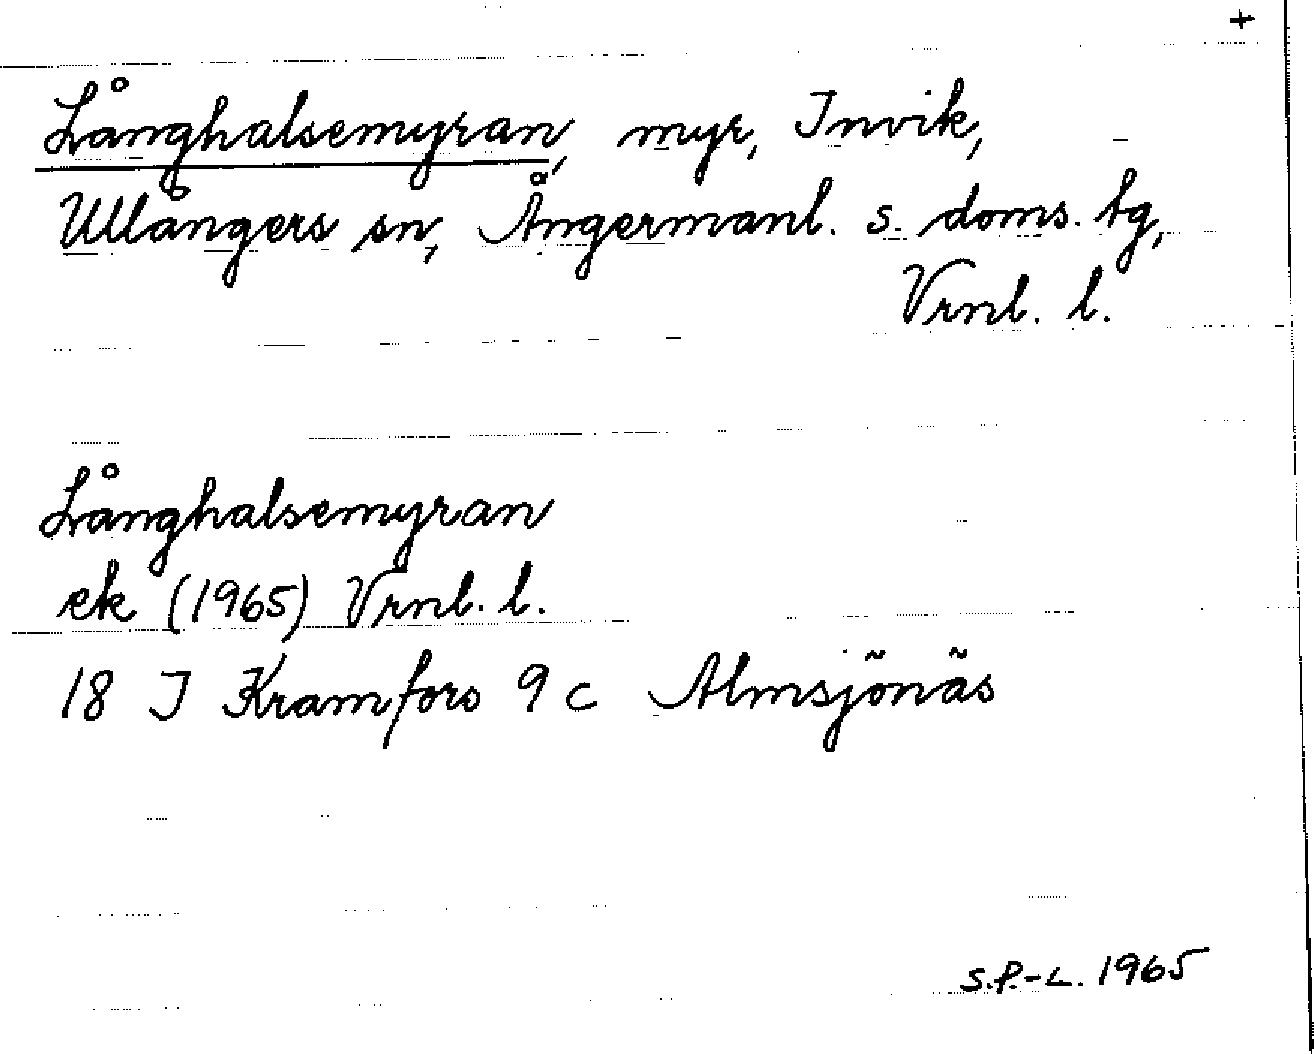 +
Långhalsemyran, myr, Invik,
Ullångers sn, Ångermanl. s. doms. tg,
Vrnl. l.
Långhalsemyran
ek (1965) Vrnl. l.
18 J Kramfors 9 c Almsjönäs
S.P.-L. 1965